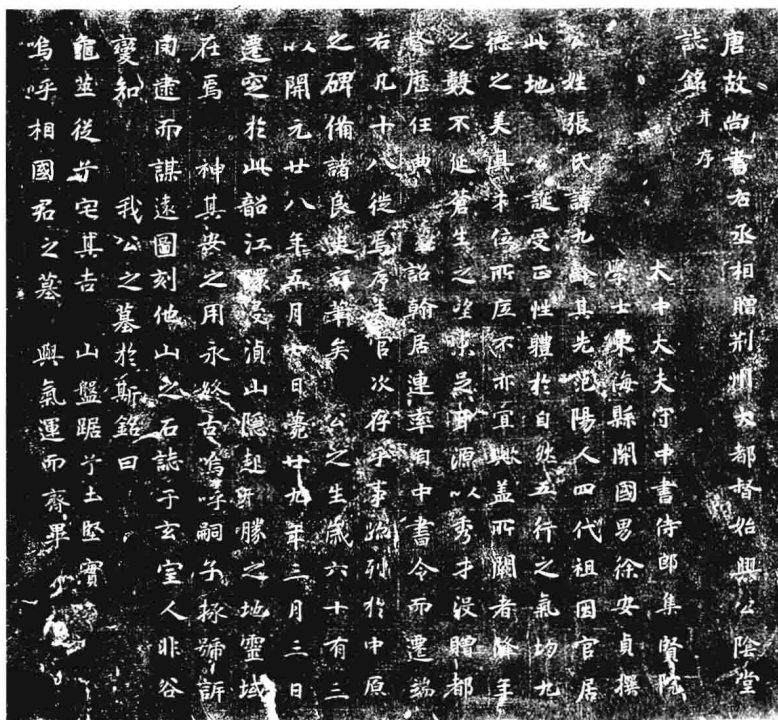 唐故尚書右丞相贈荊州大都督始興公陰堂
誌銘并序
太中大夫守中書侍郎集賢院
學士東海縣開國男徐安貞撰
公姓張氏諱九齡其先范陽人四代祖因官居
此地公誕受正性體於自然五行之氣均九
德之美俱才位所底不亦宜歟蓋所闕者降年
之數不延蒼生之望源以秀才沒贈都
督歷任典詔翰居連率自中書令而遷端
右凡十八徙焉序夫官次存乎事迹列於中原
之碑備諸良史之筆矣公之生歲六十有三
以開元廿八年五月七日薨廿九年三月三日
遷窆於此韶江環浸湞山隱起形勝之地靈域
在焉神其安之用永終古嗚呼嗣子拯號訴
罔逮而謀遠圖刻他山之石誌于玄室人非谷
變知我公之墓於斯銘曰
龜筮從兮宅其吉山盤踞兮土堅實
嗚呼相國君之墓與氣運而齊畢